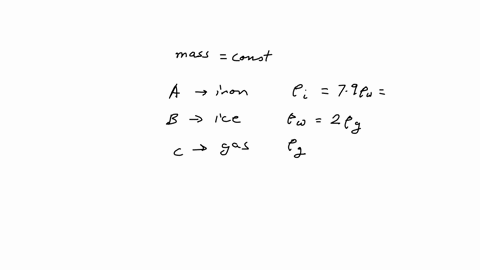 mass = const
A → iron ρi = 7.9ρw =
B → ice ρw = 2ρg
C → gas ρg